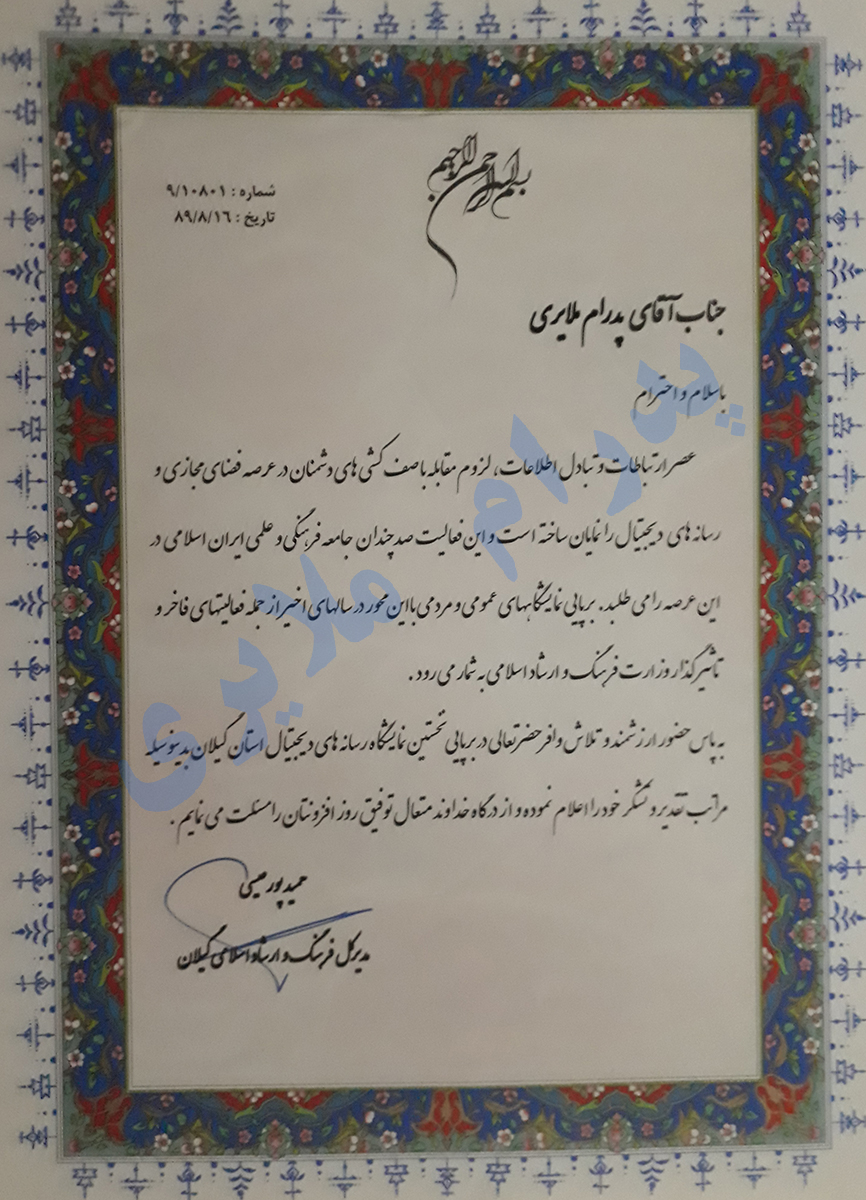 بسم الله الرحمن الرحیم
شماره : ۹/۱۰۸۰۱
تاریخ : ۸۹/۸/۱۶
جناب آقای پدرام ملایری
باسلام و احترام
عصر ارتباطات و تبادل اطلاعات، لزوم مقابله با صف کشی های دشمنان در عرصه فضای مجازی و
رسانه های دیجیتال را نمایان ساخته است و این فعالیت صد چندان جامعه فرهنگی و علمی ایران اسلامی در
این عرصه را می طلبد. برپایی نمایشگاههای عمومی و مردمی با این محور در سالهای اخیر از جمله فعالیتهای فاخر و
تاثیرگذار وزارت فرهنگ و ارشاد اسلامی به شمار می رود .
به پاس حضور ارزشمند و تلاش وافر حضرتعالی در برپایی نخستین نمایشگاه رسانه های دیجیتال استان گیلان بدینوسیله
مراتب تقدیر و تشکر خود را اعلام نموده و از درگاه خداوند متعال توفیق روز افزونتان را مسئلت می نمایم .
حمید پور عیسی
مدیرکل فرهنگ و ارشاد اسلامی گیلان
پدرام ملایری